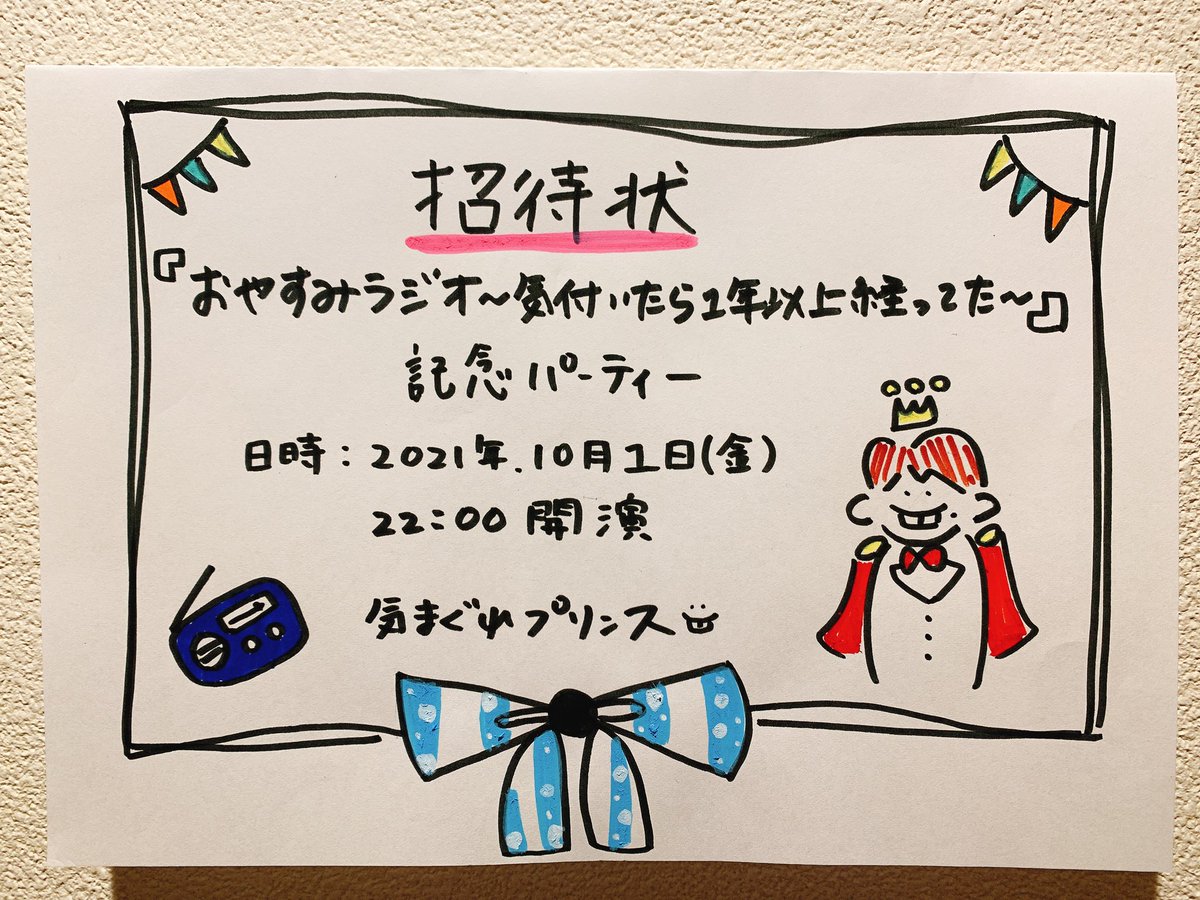 招待状
『おやすみラジオ〜気付いたら1年以上経ってた〜』
記念パーティー
日時:2021年.10月1日(金)
22:00 開演
気まぐれプリンス